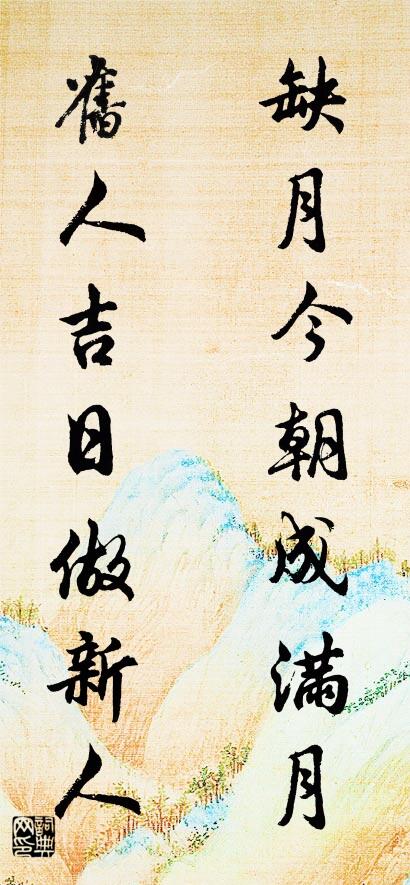 缺月今朝成满月
舊人吉日做新人
詞典网印